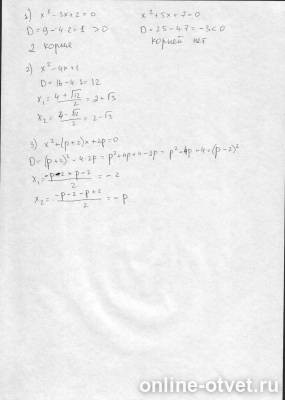 1) x² - 3x + 2 = 0
D = 9 - 4·2 = 1 > 0
2 корня
x² + 5x + 7 = 0
D = 25 - 4·7 = -3 < 0
корней нет
2) x² - 4x + 1
D = 16 - 4·1 = 12
x₁ = (4 + √12)/2 = 2 + √3
x₂ = (4 - √12)/2 = 2 - √3
3) x² + (p + 2)x + 2p = 0
D = (p + 2)² - 4·2p = p² + 4p + 4 - 8p = p² - 4p + 4 = (p - 2)²
x₁ = (-p - 2 + p - 2)/2 = -2
x₂ = (-p - 2 - p + 2)/2 = -p
online-otvet.ru